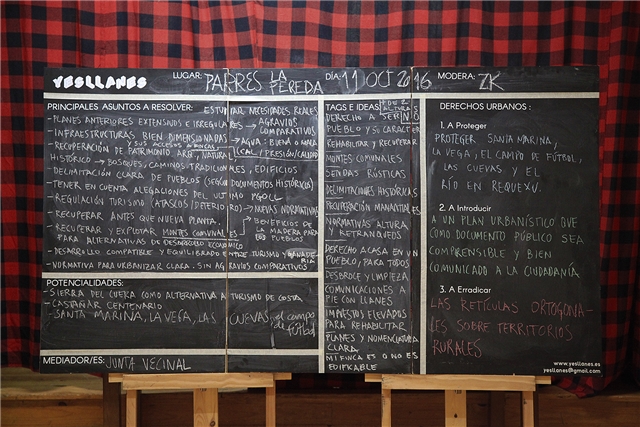 YESLLANES LUGAR: PARRES LA PEREDA DÍA: 11 OCT 2016 MODERA: ZK
PRINCIPALES ASUNTOS A RESOLVER: ESTUDIAR NECESIDADES REALES
- PLANES ANTERIORES EXTENSIVOS E IRREGULARES → AGRAVIOS COMPARATIVOS
- INFRAESTRUCTURAS BIEN DIMENSIONADAS → AGUA: BUENA O MALA (CAL/PRESIÓN/CALIDAD)
Y SUS ACCESOS
- RECUPERACIÓN DE PATRIMONIO ARQ., NATURAL,
HISTÓRICO → BOSQUES, CAMINOS TRADICIONALES, EDIFICIOS
- DELIMITACIÓN CLARA DE PUEBLOS (SEGÚN DOCUMENTOS HISTÓRICOS)
- TENER EN CUENTA ALEGACIONES DEL ULTIMO PGOLL
- REGULACIÓN TURISMO (ATASCOS/DETERIORO) → NUEVAS NORMATIVAS
- RECUPERAR ANTES QUE NUEVA PLANTA.
- RECUPERAR Y EXPLOTAR MONTES COMUNALES → BENEFICIOS DE LA MADERA PARA PUEBLOS
PARA ALTERNATIVAS DE DESARROLLO ECONÓMICO
- DESARROLLO COMPATIBLE Y EQUILIBRADO ENTRE TURISMO Y GANADERIA
- NORMATIVA PARA URBANIZAR CLARA. SIN AGRAVIOS COMPARATIVOS
POTENCIALIDADES:
- SIERRA DEL CUERA COMO ALTERNATIVA A TURISMO DE COSTA
- CASTAÑAR CENTENARIO
- SANTA MARINA, LA VEGA, LAS CUEVAS, el campo de fútbol
MEDIADOR/ES: JUNTA VECINAL
TAGS E IDEAS: + DE 2 ALTURAS NO
DERECHO A SER
PUEBLO Y SU CARACTER
REHABILITAR Y RECUPERAR
MONTES COMUNALES
SENDAS RÚSTICAS
DELIMITACIONES HISTÓRICAS
RECUPERACIÓN MANANTIALES
NORMATIVAS ALTURA
Y RETRANQUEOS
DERECHO A CASA EN UN
PUEBLO, PARA TODOS
DESBROCE Y LIMPIEZA
COMUNICACIONES A
PIE CON LLANES
IMPUESTOS ELEVADOS
PARA REHABILITAR
PLANES Y NOMENCLATURA
CLARA.
MI FINCA ES O NO ES
EDIFICABLE
DERECHOS URBANOS:
1. A Proteger
PROTEGER SANTA MARINA,
LA VEGA, EL CAMPO DE FÚTBOL,
LAS CUEVAS Y EL
RÍO EN REQUEXU.
2. A Introducir
A UN PLAN URBANÍSTICO QUE
COMO DOCUMENTO PÚBLICO SEA
COMPRENSIBLE Y BIEN
COMUNICADO A LA CIUDADANÍA
3. A Erradicar
LAS RETÍCULAS ORTOGONA-
LES SOBRE TERRITORIOS
RURALES
www.yesllanes.es
yesllanes@gmail.com